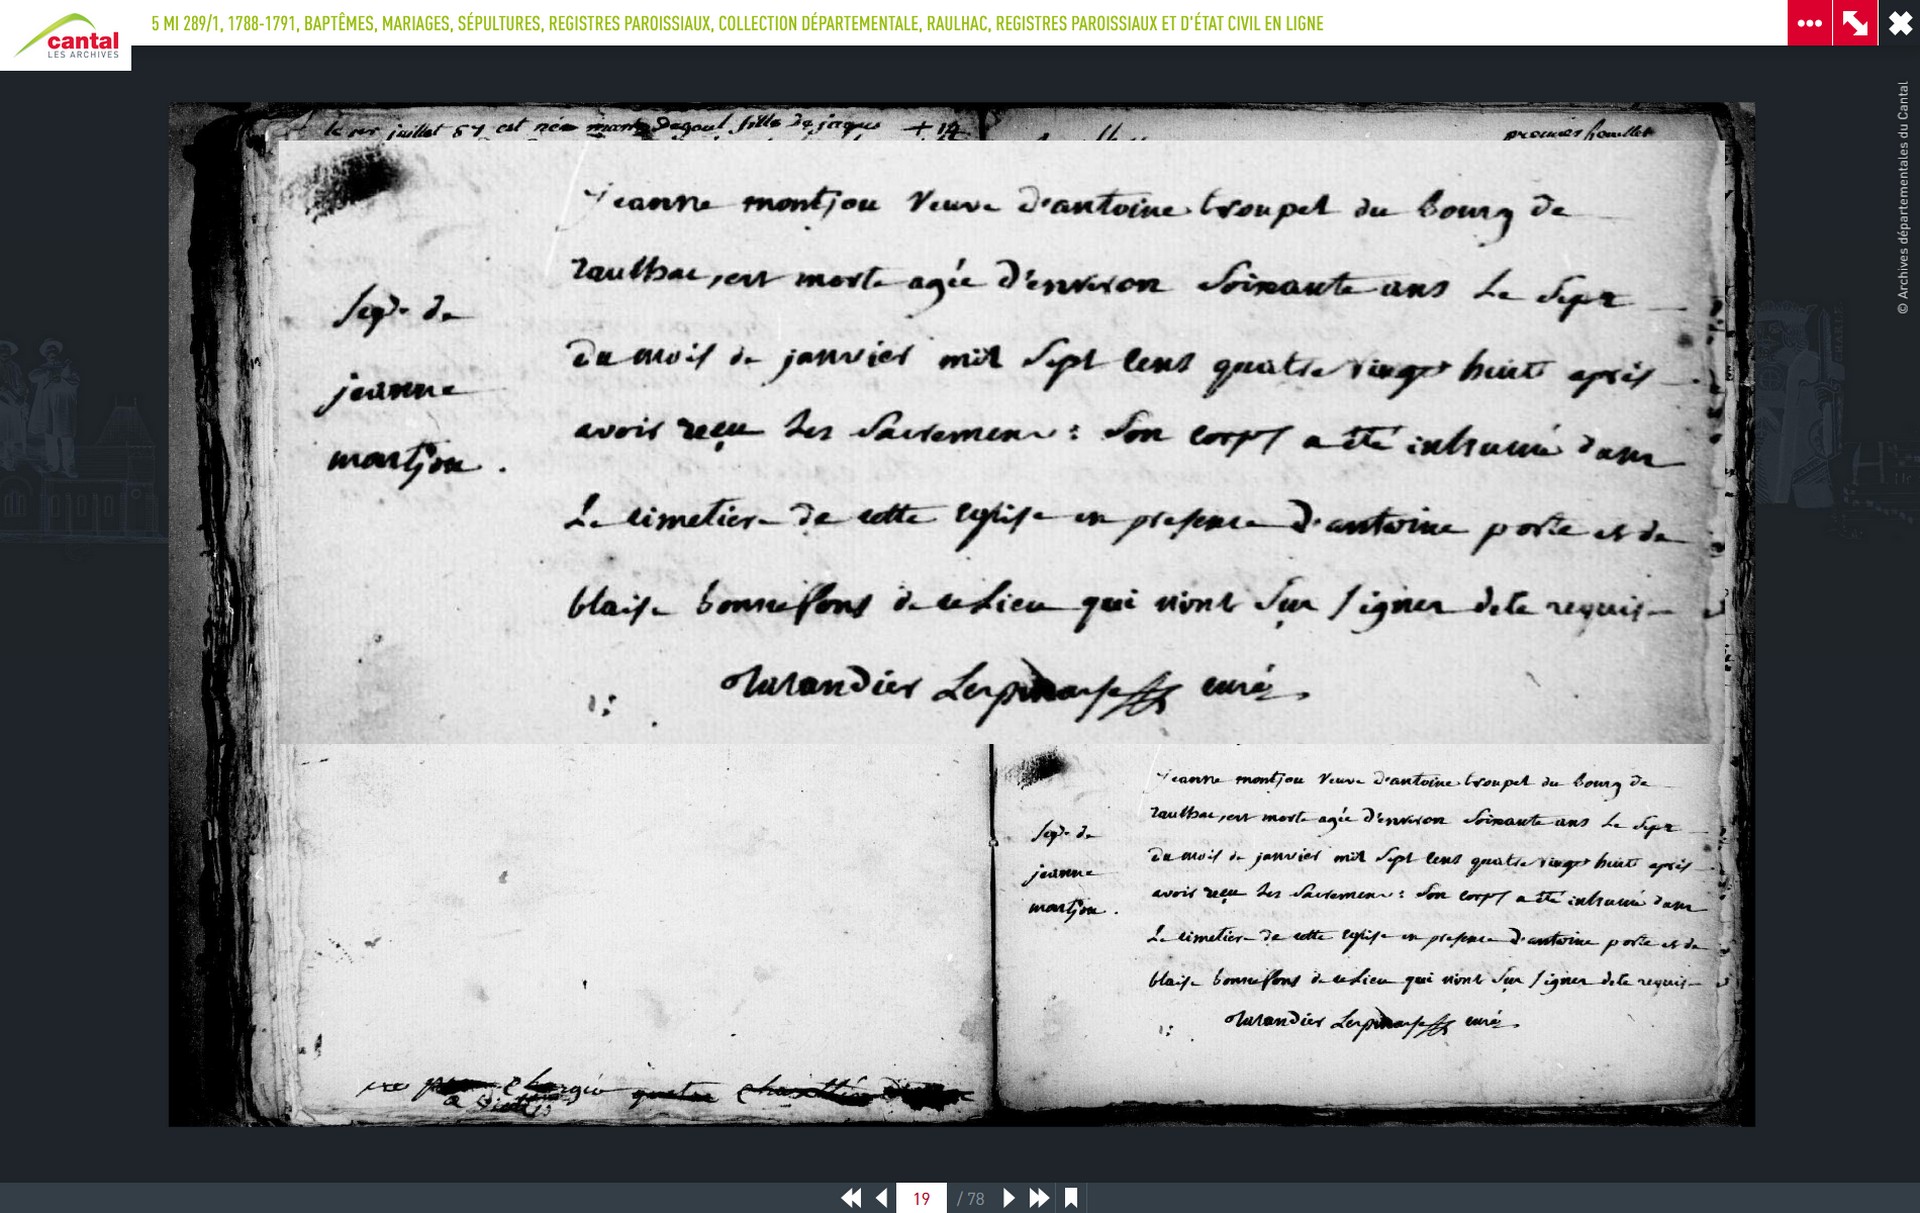 cantal
LES ARCHIVES
5 MI 289/1, 1788-1791, BAPTÊMES, MARIAGES, SÉPULTURES, REGISTRES PAROISSIAUX, COLLECTION DÉPARTEMENTALE, RAULHAC, REGISTRES PAROISSIAUX ET D'ÉTAT CIVIL EN LIGNE
© Archives départementales du Cantal
le 1er juillet 87 est née Degoul fille de jaques + 14
premier feuillet
jeanne montjou veuve d'antoine troupel du bourg de
raulhac, est morte agée d'environ soixante ans le sept
du mois de janvier mil sept cens quatre vingt huit après
avoir reçu les sacremens : son corps a été inhumé dans
le cimetiere de cette eglise en presence d'antoine porte et de
blaise bonnefons de ce lieu qui n'ont sçu signer de ce requis
Lespinasse curé
sep. de
jeanne
montjou.
jeanne montjou veuve d'antoine troupel du bourg de
raulhac, est morte agée d'environ soixante ans le sept
du mois de janvier mil sept cens quatre vingt huit après
avoir reçu les sacremens : son corps a été inhumé dans
le cimetiere de cette eglise en presence d'antoine porte et de
blaise bonnefons de ce lieu qui n'ont sçu signer de ce requis
Lespinasse curé
sep. de
jeanne
montjou.
19 / 78